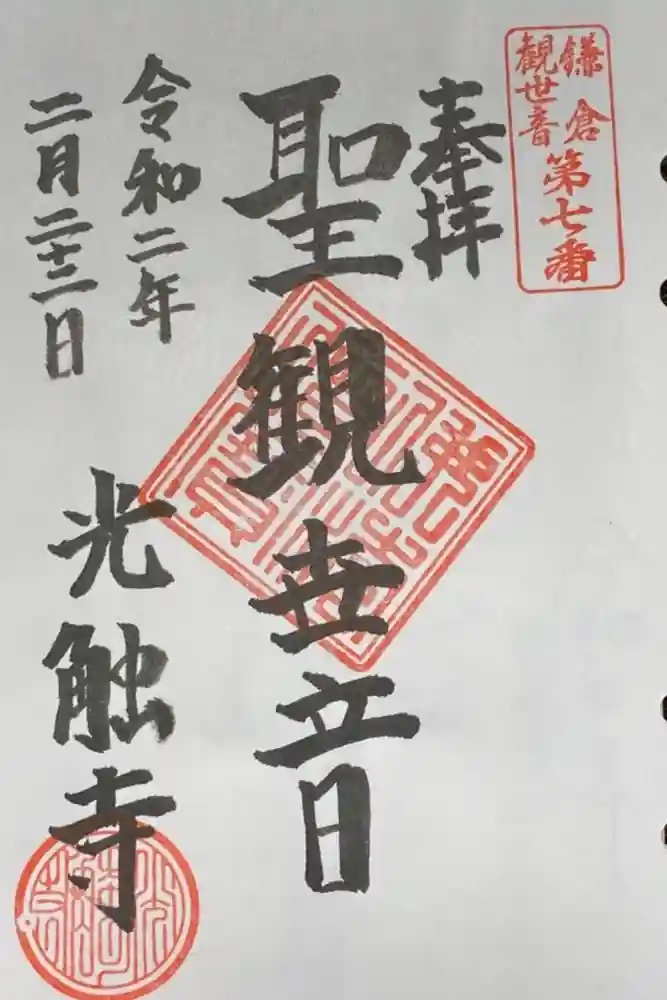 鎌倉
観世音
第七番
奉拝
聖観世音
令和二年
二月二十二日
光触寺